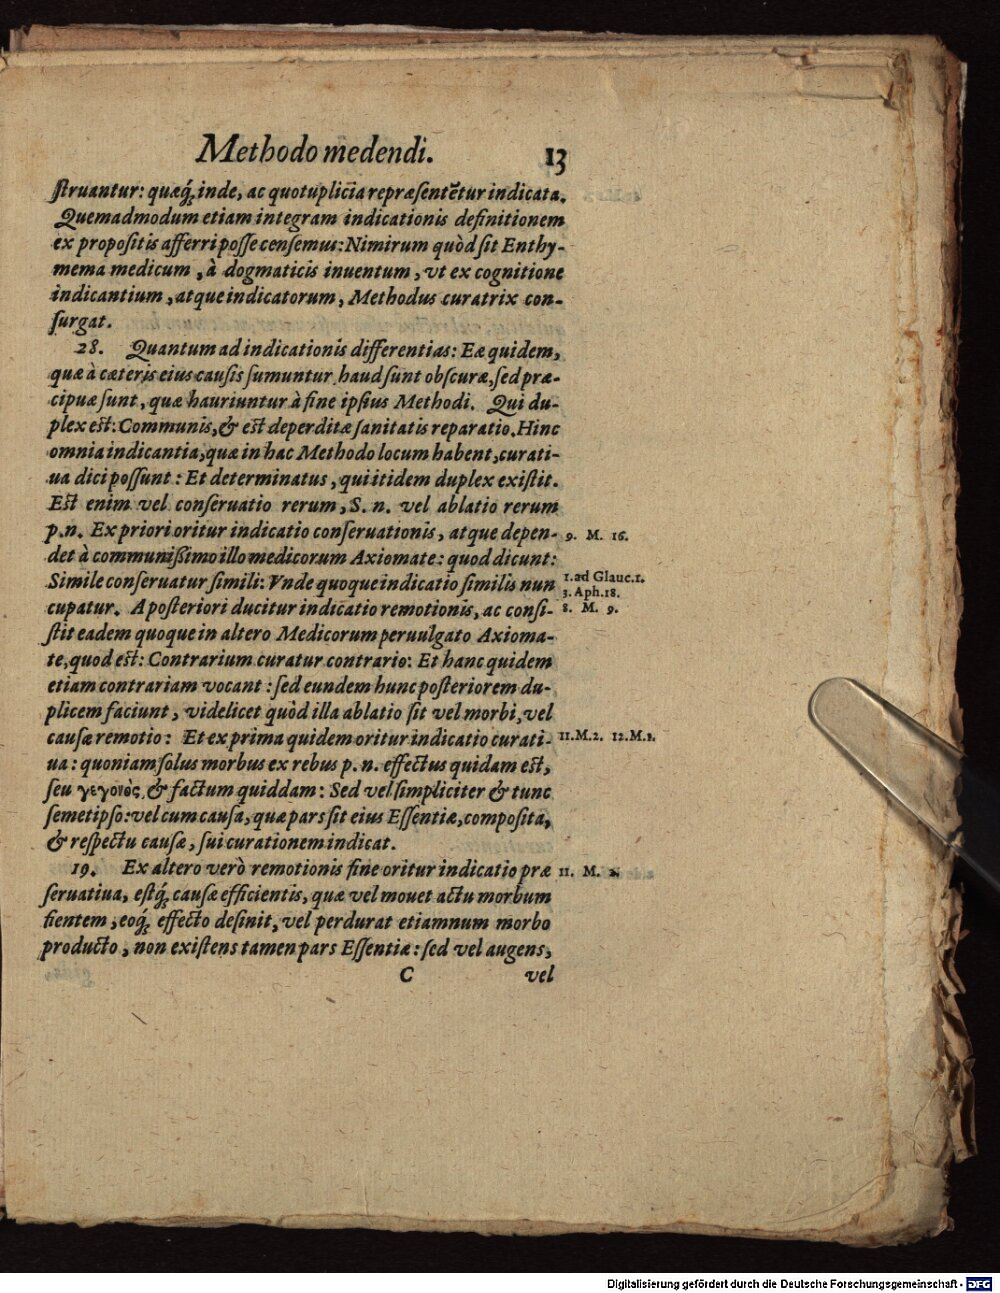 Methodo medendi. 13
ſtruantur: quæq́; inde, ac quotuplicia repræſentẽtur indicata.
Quemadmodum etiam integram indicationis definitionem
ex propoſitis afferri poſſe cenſemus: Nimirum quòd ſit Enthy-
mema medicum, à dogmaticis inuentum, vt ex cognitione
indicantium, atque indicatorum, Methodus curatrix con-
ſurgat.
28. Quantum ad indicationis differentias: Eæ quidem,
quæ à cæteris eius cauſis ſumuntur, haud ſunt obſcuræ, ſed præ-
cipuæ ſunt, quæ hauriuntur à fine ipſius Methodi. Qui du-
plex eſt: Communis, & eſt deperditæ ſanitatis reparatio. Hinc
omnia indicantia, quæ in hac Methodo locum habent, curati-
ua dici poſſunt: Et determinatus, qui itidem duplex exiſtit.
Eſt enim vel conſeruatio rerum, S. n. vel ablatio rerum
p.n. Ex priori oritur indicatio conſeruationis, atque depen- 9. M. 16.
det à communißimo illo medicorum Axiomate: quod dicunt:
Simile conſeruatur ſimili: Vnde quoque indicatio ſimilis nun 1. ad Glauc. 1.
3. Aph. 18.
cupatur. A poſteriori ducitur indicatio remotionis, ac conſi- 8. M. 9.
ſtit eadem quoque in altero Medicorum peruulgato Axioma-
te, quod eſt: Contrarium curatur contrario: Et hanc quidem
etiam contrariam vocant: ſed eundem hunc poſteriorem du-
plicem faciunt, videlicet quòd illa ablatio ſit vel morbi, vel
cauſæ remotio: Et ex prima quidem oritur indicatio curati- 11. M. 2. 12. M. 1.
ua: quoniam ſolus morbus ex rebus p. n. effectus quidam eſt,
ſeu γεγονὸς, & factum quiddam: Sed vel ſimpliciter & tunc
ſemetipſo: vel cum cauſa, quæ pars ſit eius Eſſentiæ, compoſita,
& reſpectu cauſæ, ſui curationem indicat.
19. Ex altero verò remotionis fine oritur indicatio præ 11. M. 2.
ſeruatiua, eſtq́; cauſæ efficientis, quæ vel mouet actu morbum
fientem, eoq́; effecto deſinit, vel perdurat etiamnum morbo
producto, non exiſtens tamen pars Eſſentiæ: ſed vel augens,
C vel
Digitalisierung gefördert durch die Deutsche Forschungsgemeinschaft - DFG